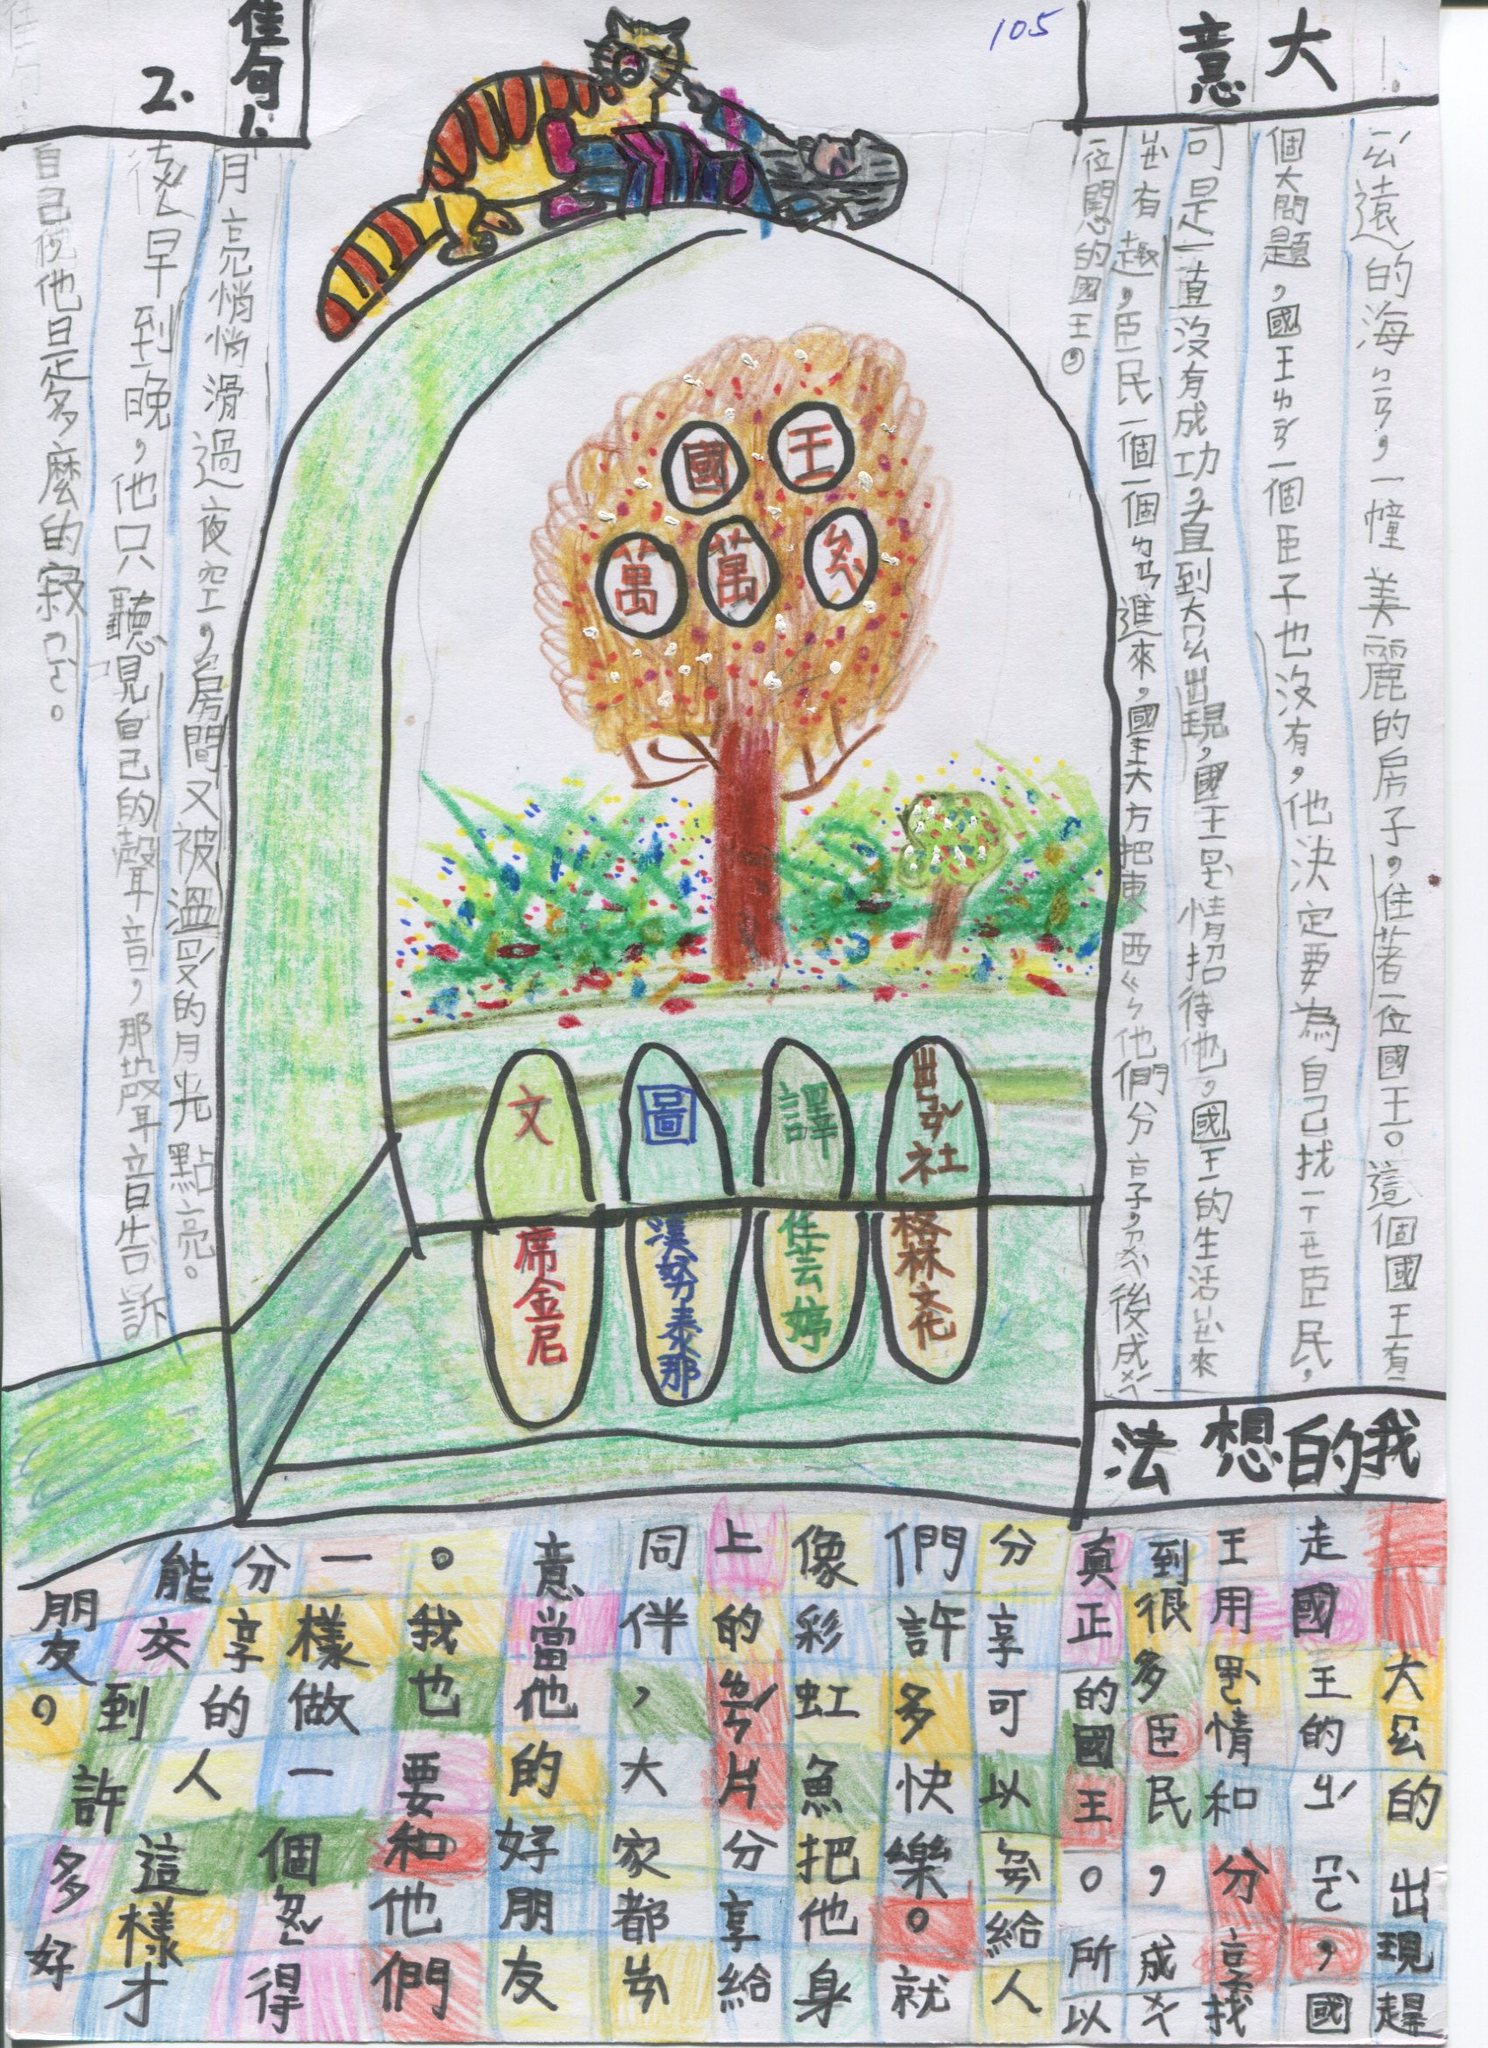 105
大意
遠的海,一幢美麗的房子,住著一位國王。這個國王有一
個大問題,國王ㄌㄧㄢˊ一個臣子也沒有,他決定要為自己找一ㄒㄧㄝ臣民,
可是一直沒有成功,直到大公出現,國王情招待他,國王的生活ㄩㄝˋ來
ㄩㄝˋ有趣,臣民一個一個進來,國王大方把東西ㄍㄣ他們分享,後成ㄨㄟˊ
一位開心的國王。
佳句
1.
月亮悄悄滑過夜空,房間又被溫ㄖㄡˊ的月光點亮。
2.
從早到晚,他只聽見自己的聲音,那聲音告訴
自己說他是多麼的寂ㄇㄛˋ。
國王
萬萬ㄙㄨㄟˋ
文 席金名
圖 漢努泰那
譯 任芸婷
出ㄅㄢˇ社 格林文化
我的想法
大公的出現趕
走國王的ㄐㄧˊㄇㄛˋ,國
王用ㄖㄜˋ情和分享找
到很多臣民,成ㄨㄟˊ
真正的國王。所以
分享可以給人
們許多快樂。就
像彩虹魚把他身
上的ㄌㄧㄣˊ片分享給
同伴,大家都
意當他的好朋友
。我也要和他們
一樣做一個得
分享的人這樣才
能交到許多好
朋友。